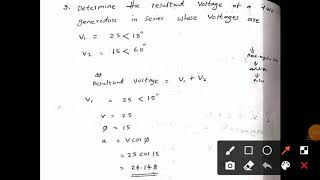 3. Determine the resultant voltage of a two
generators in series whose voltages are
V₁ = 25 < 15°
V₂ = 15 < 60°
Resultant Voltage = V₁ + V₂
V₁ = 25 < 15°
V = 25
Ø = 15
a = V cos Ø
= 25 cos 15
= 24.148